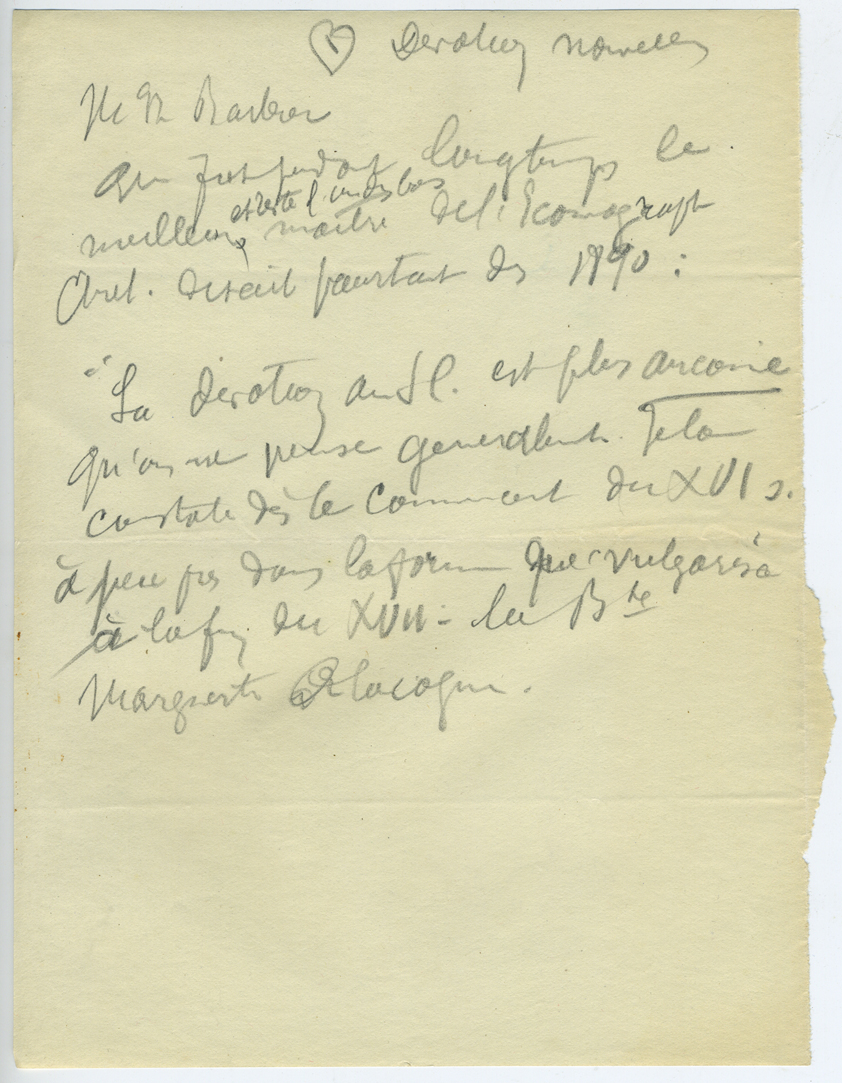 Devotion nouvelle
Mr Barbier
qui fut pendant longtemps le
et reste l'un des bons
meilleur maitre de l'Iconograph
Chret. disait pourtant dès 1890 :
"La devotion au S C. est plus ancienne
qu'on ne pense generalent. Je la
constate dès le comment du XVI s.
à peu près dans la forme que vulgarisa
à la fin du XVII - la Bte
Marguerite Alacoque.